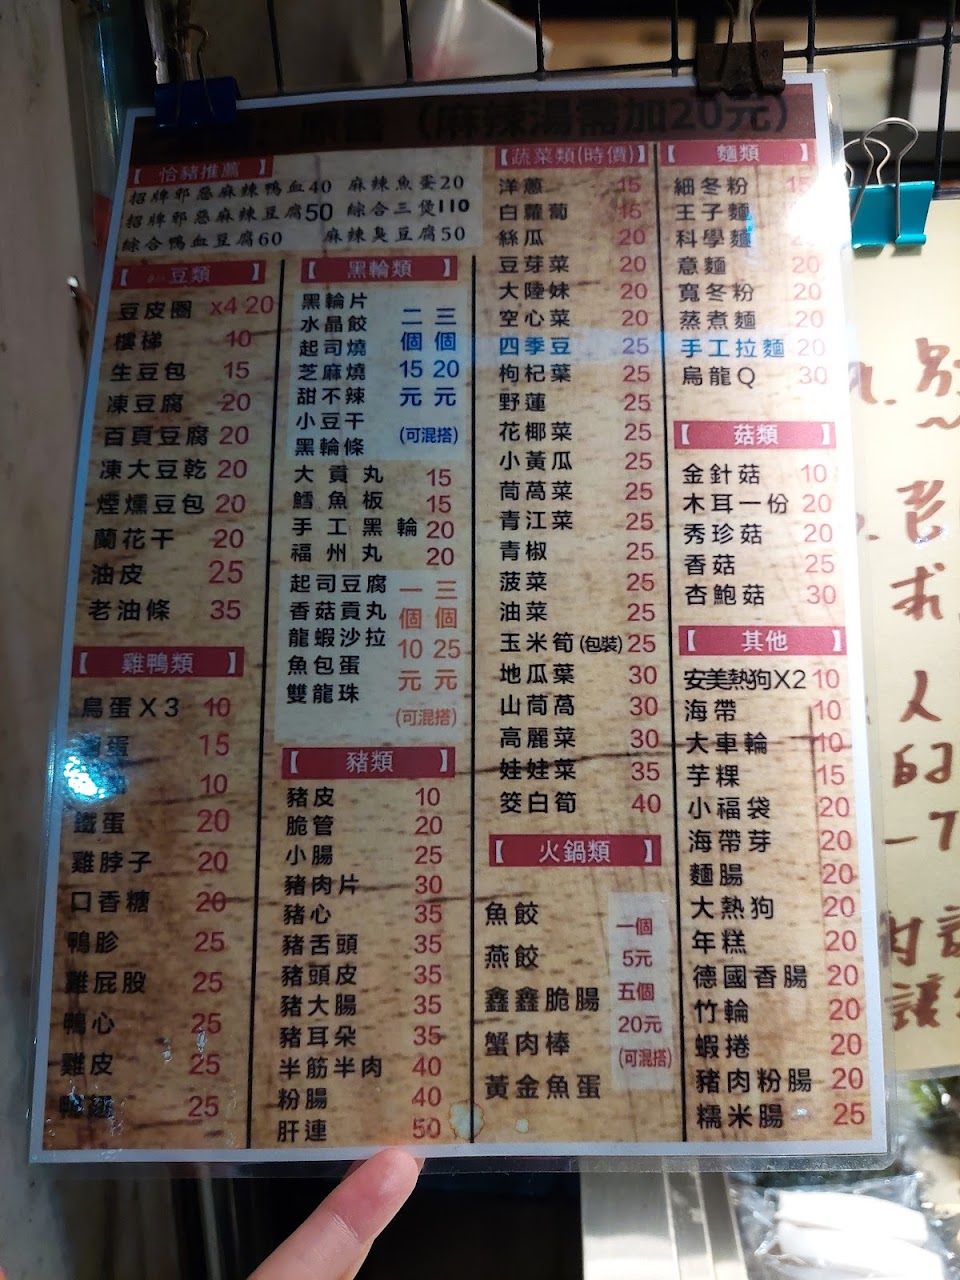 原醬 (麻辣湯需加20元)
【恰豬推薦】
招牌邪惡麻辣鴨血40 麻辣魚蛋20
招牌邪惡麻辣豆腐50 綜合三煲110
綜合鴨血豆腐60 麻辣臭豆腐50
豆類】
豆皮圈 x4 20
樓梯 10
生豆包 15
凍豆腐 20
百頁豆腐 20
凍大豆乾 20
煙燻豆包 20
蘭花干 20
油皮 25
老油條 35
【雞鴨類】
鳥蛋X3 10
蛋 15
10
鐵蛋 20
雞脖子 20
口香糖 20
鴨胗 25
雞屁股 25
鴨心 25
雞皮 25
25
【黑輪類】
黑輪片
水晶餃
起司燒
芝麻燒
甜不辣
小豆干
黑輪條
二個15元
三個20元
(可混搭)
大貢丸 15
鱈魚板 15
手工黑輪 20
福州丸 20
起司豆腐
香菇貢丸
龍蝦沙拉
魚包蛋
雙龍珠
一個10元
三個25元
(可混搭)
【豬類】
豬皮 10
脆管 20
小腸 25
豬肉片 30
豬心 35
豬舌頭 35
豬頭皮 35
豬大腸 35
豬耳朵 35
半筋半肉 40
粉腸 40
肝連 50
【蔬菜類(時價)】
洋蔥 15
白蘿蔔 15
絲瓜 20
豆芽菜 20
大陸妹 20
空心菜 20
四季豆 25
枸杞葉 25
野蓮 25
花椰菜 25
小黃瓜 25
茼萵菜 25
青江菜 25
青椒 25
菠菜 25
油菜 25
玉米筍(包裝) 25
地瓜葉 30
山茼萵 30
高麗菜 30
娃娃菜 35
筊白筍 40
【火鍋類】
魚餃
燕餃
鑫鑫脆腸
蟹肉棒
黃金魚蛋
一個
5元
五個
20元
(可混搭)
【麵類】
細冬粉 15
王子麵
科學麵 20
意麵 20
寬冬粉 20
蒸煮麵 20
手工拉麵 20
烏龍Q 30
【菇類】
金針菇 10
木耳一份 20
秀珍菇 20
香菇 25
杏鮑菇 30
【其他】
安美熱狗X2 10
海帶 10
大車輪 10
芋粿 15
小福袋 20
海帶芽 20
麵腸 20
大熱狗 20
年糕 20
德國香腸 20
竹輪 20
蝦捲 20
豬肉粉腸 20
糯米腸 25
求
人
的
一
內
讓